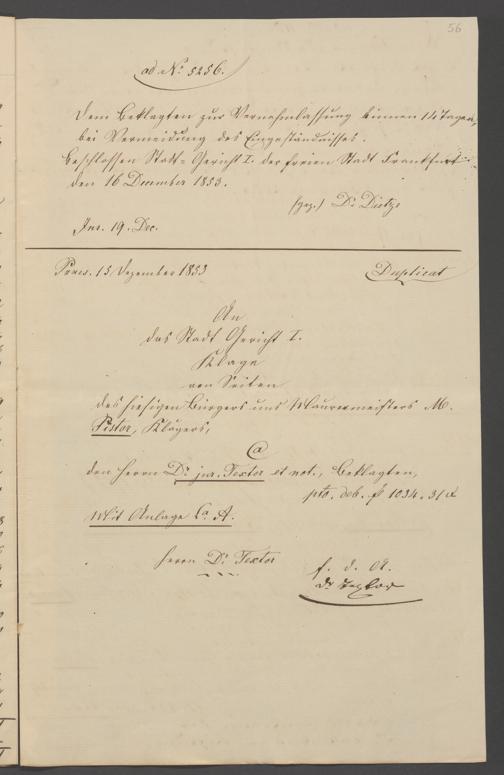 56
ad. No. 5256.
Dem Beklagten zur Vernehmlassung binnen 14 Tagen,
bei Vermeidung des Eingeständnisses.
Beschlossen Stadt-Gericht I. der freien Stadt Frankfurt
den 16 December 1853.
(gez.) Dr. Dietze
Ins. 19. Dec.
Praes. 15 Dezember 1853
Duplicat
An
das Stadt Gericht I.
Klage
von Seiten
des hiesigen Bürgers und Maurermeisters M.
Pistor, Klägers,
Ca
den Herrn Dr. jur. Textor et not., Beklagten,
pto. deb. f 1034. 31 x
Mit Anlage Ca. A.
Herrn Dr. Textor
f. d. A.
Dr. Textor